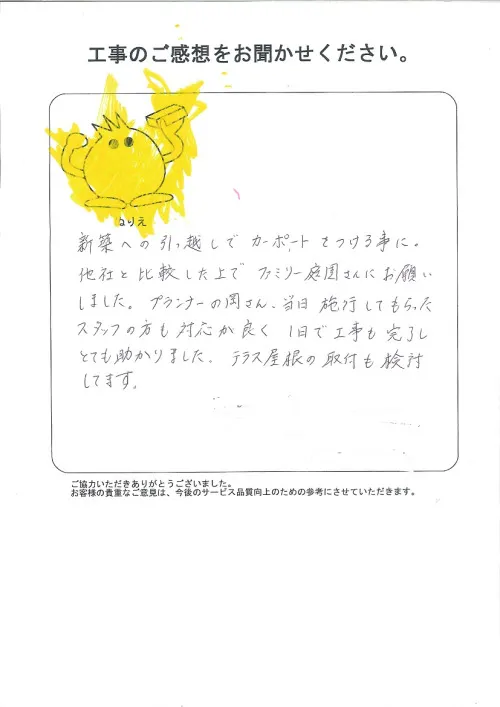 工事のご感想をお聞かせください。
ぬりえ
新築への引っ越しで カーポートをつける事に。
他社と比較した上で ファミリー庭園さんにお願い
しました。プランナーの岡さん、当日 施行してもらった
スタッフの方も対応が良く 1日で工事も完了し
とても助かりました。テラス屋根の取付も検討
してます。
ご協力いただきありがとうございました。
お客様の貴重なご意見は、今後のサービス品質向上のための参考にさせていただきます。